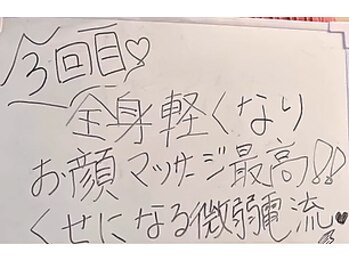 3回目♡
全身軽くなり
お顔マッサージ最高!!
くせになる微弱電流♥